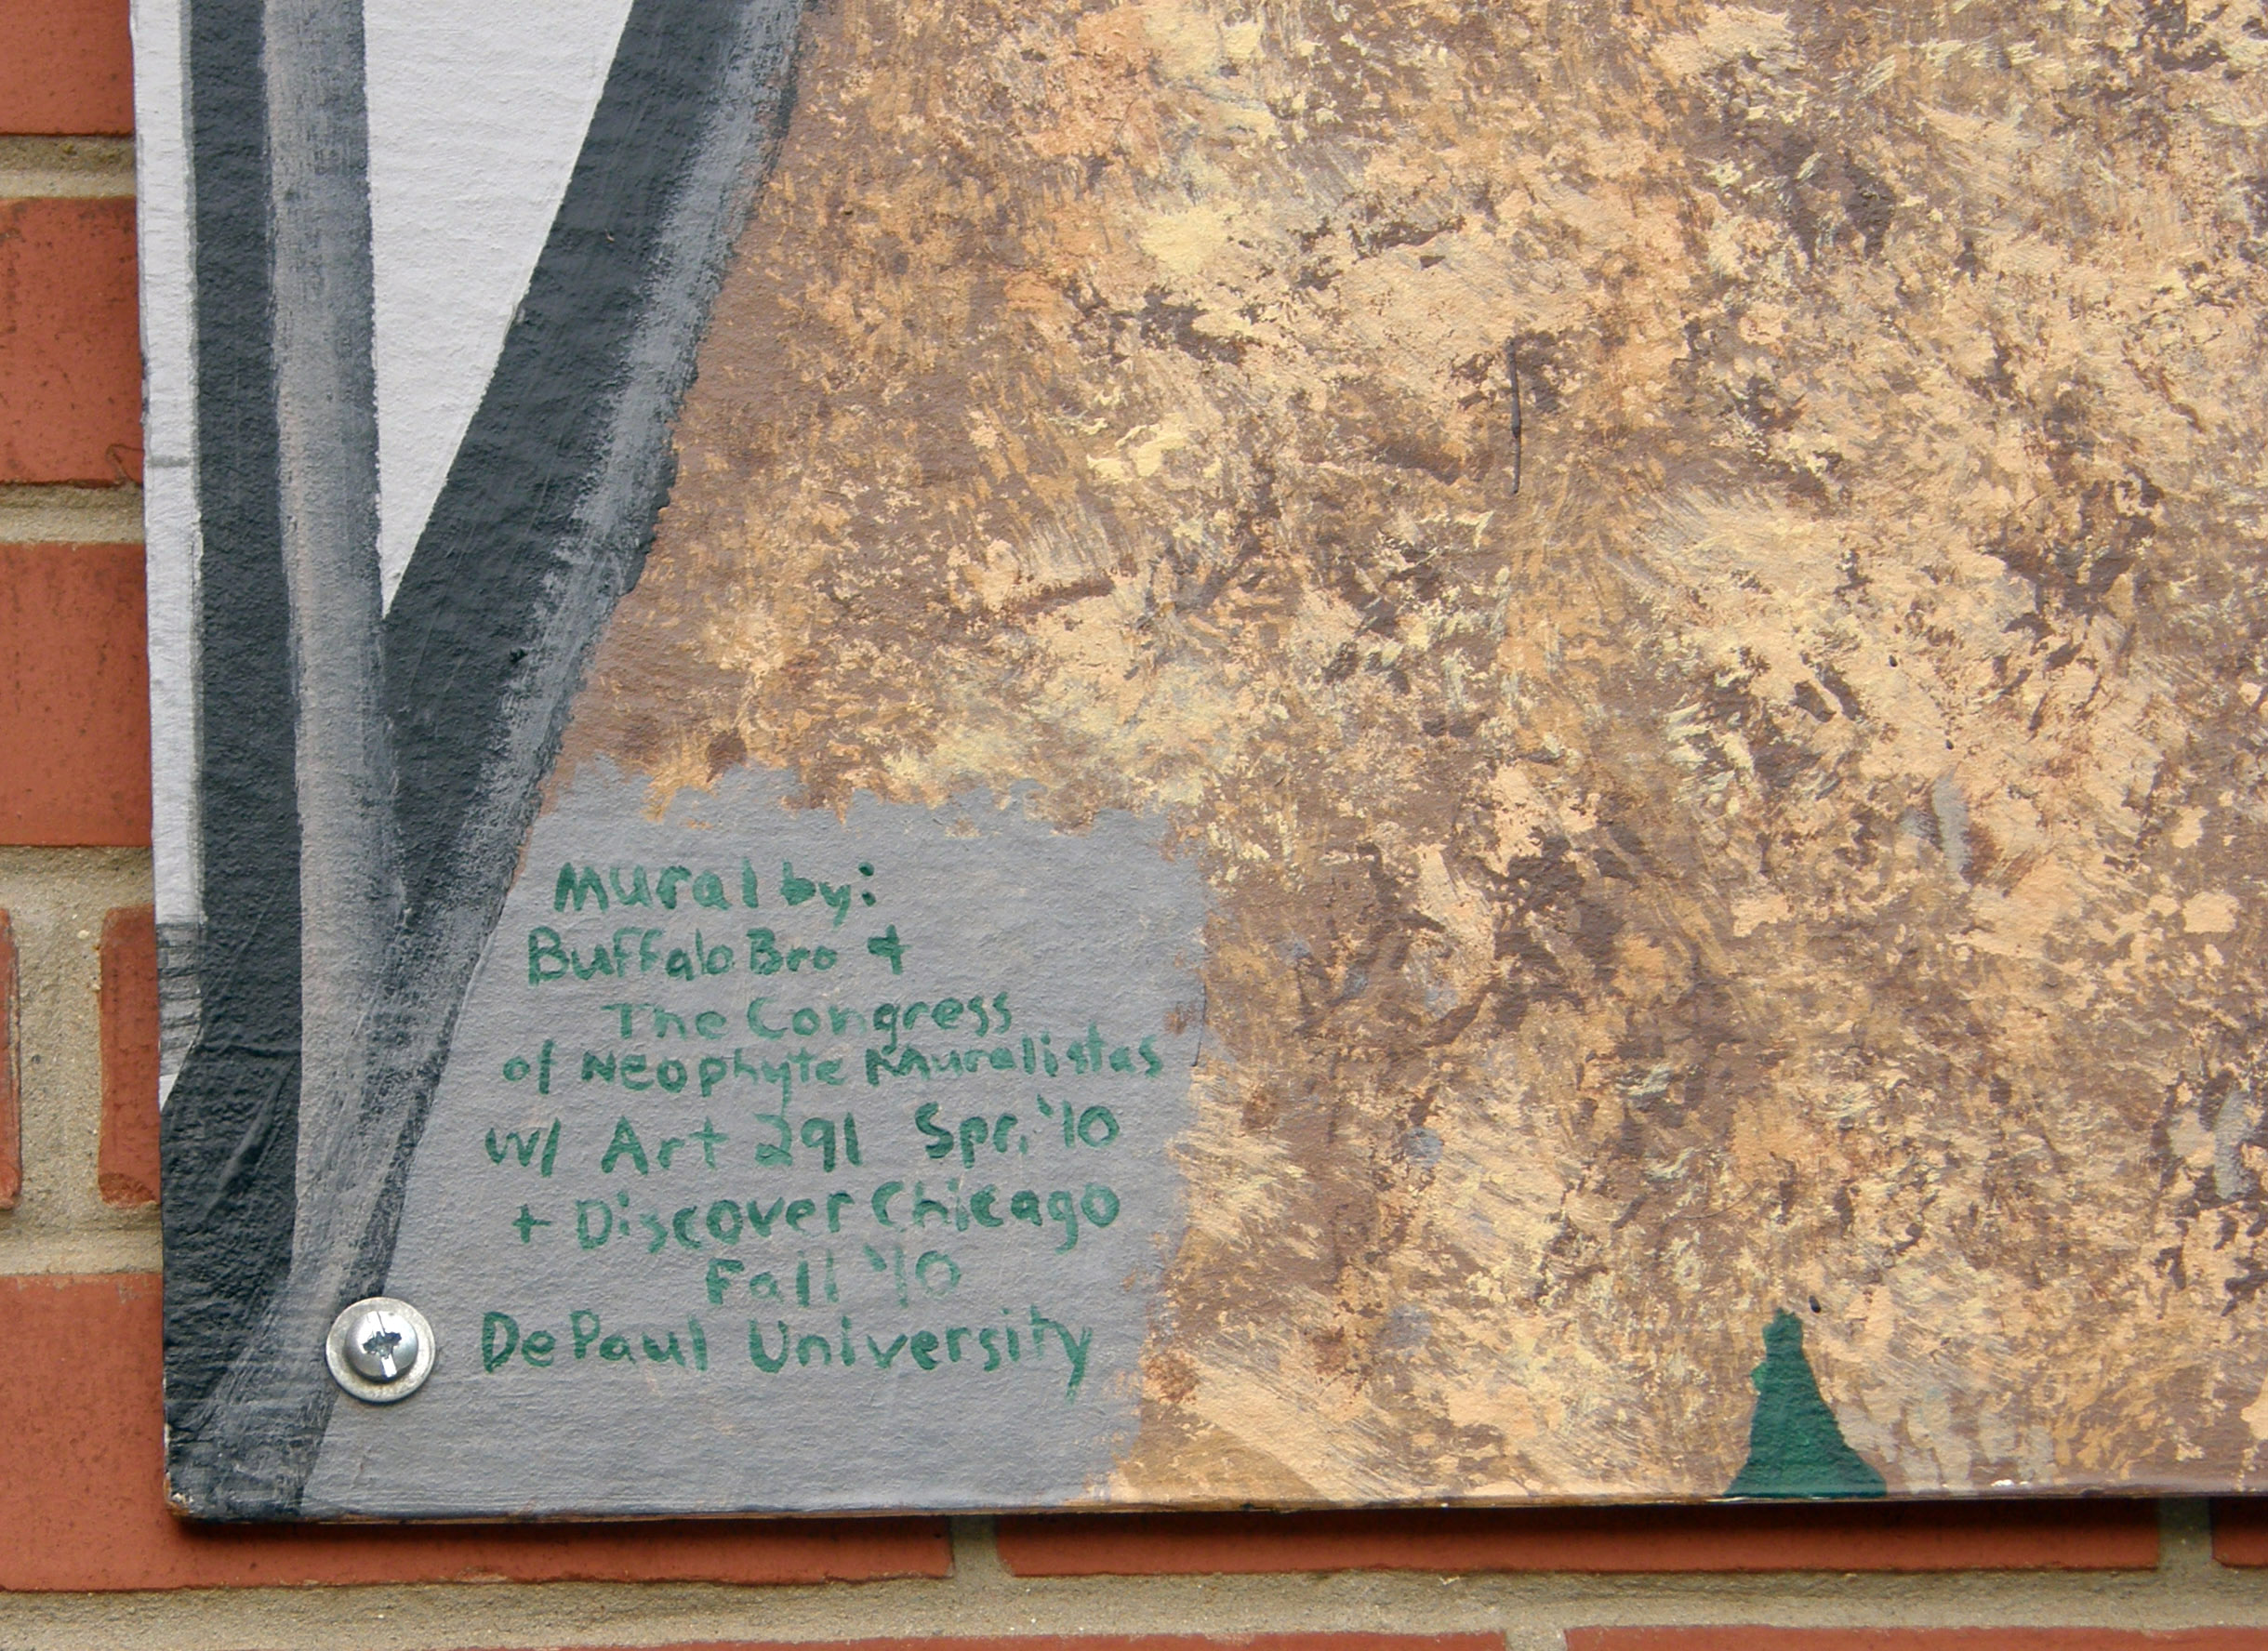 Mural by:
Buffalo Bro +
The Congress
of Neophyte Muralistas
w/ Art 291 Spr. '10
+ Discover Chicago
Fall '10
DePaul University